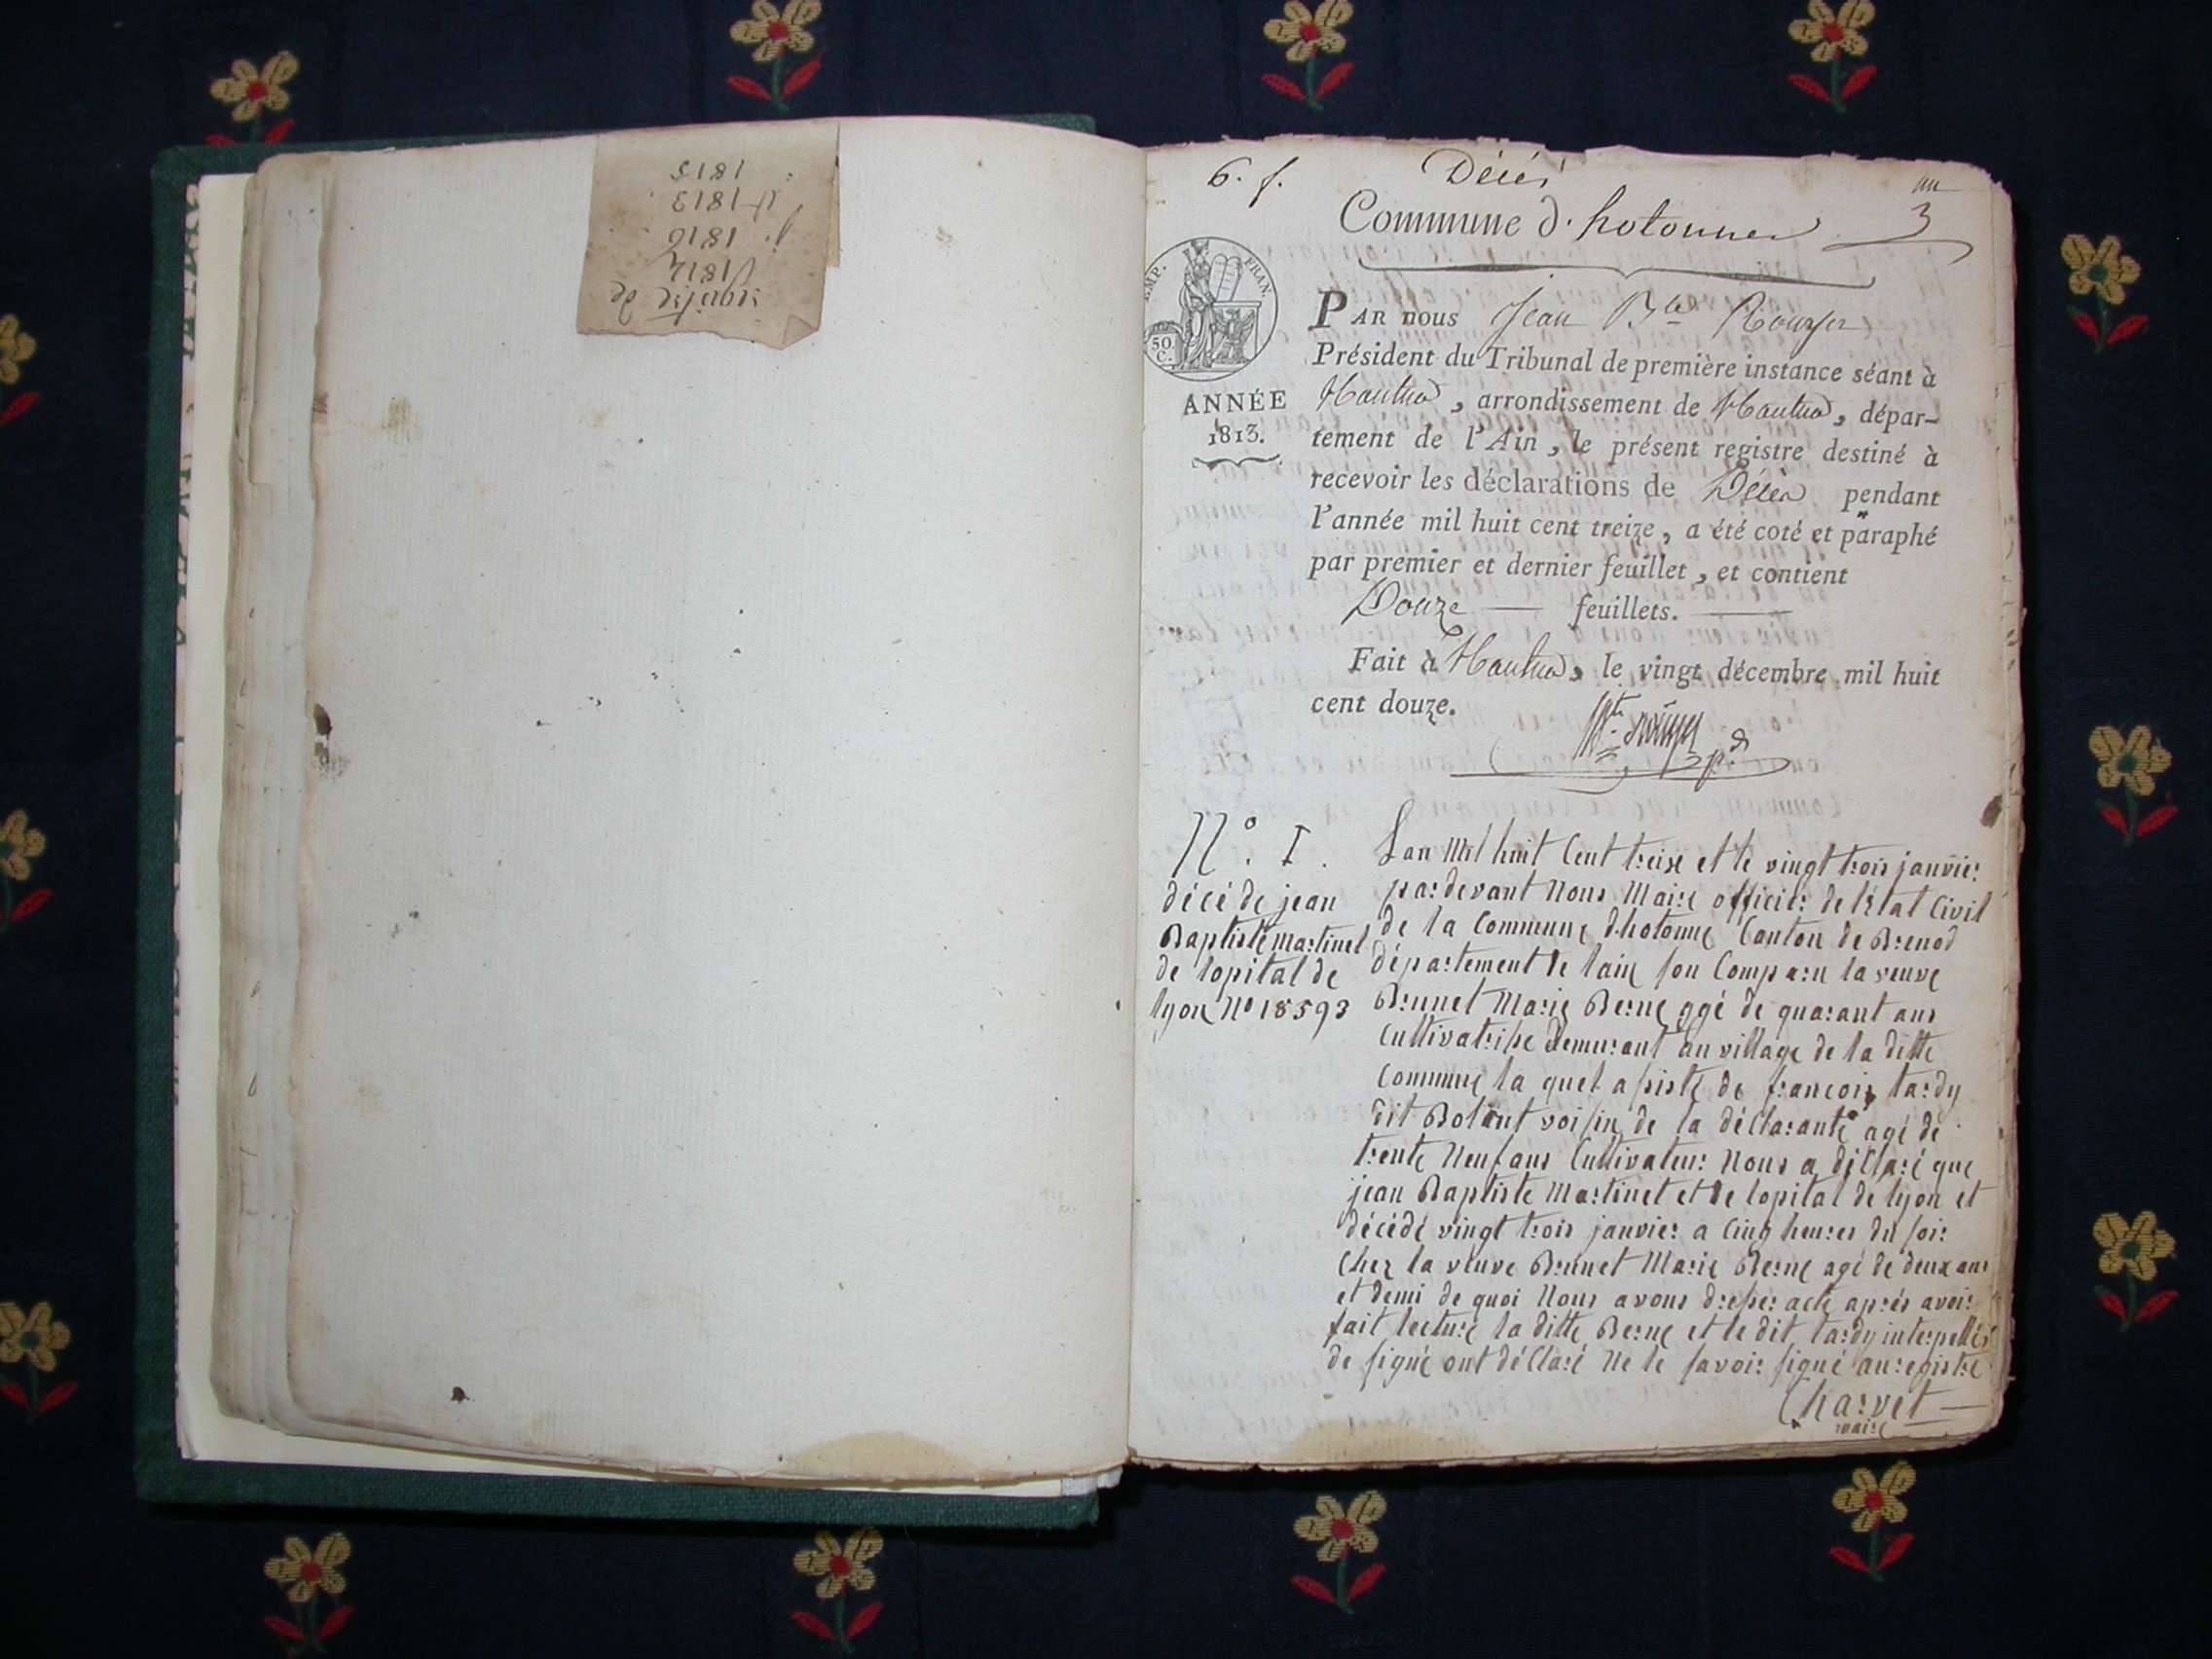 1815
et 1813
1816
1812
6. f.
Décès
Commune d'hotonnes
3
EMP. FRAN.
50
C.
ANNÉE
1813.
PAR nous Jean Bte
Président du Tribunal de première instance séant à
Nantua, arrondissement de Nantua, dépar-
tement de l'Ain, le présent registre destiné à
recevoir les déclarations de Décès pendant
l'année mil huit cent treize, a été coté et paraphé
par premier et dernier feuillet, et contient
Douze feuillets.
Fait à Nantua, le vingt décembre mil huit
cent douze.
N°. I.
décé de jean
Baptiste martinet
de lopital de
lyon N° 18593
Lan Mil huit Cent treise et le vingt trois janvier
pardevant Nous Maire officier de létat Civil
de la Commune dhotonne Canton de Brenod
département de lain son Comparu la veuve
Brunet Marie Berne agé de quarant ans
Cultivatrise demurant au village de la ditte
Commune la quel asisté de francois tardy
dit Bolant voisin de la déclarante agé de
trente Neuf ans Cultivateur Nous a déclaré que
jean Baptiste Martinet et de lopital de lyon et
décédé vingt trois janvier a Cinq heures du soir
Chez la veuve Brunet Marie Berne agé de deux ans
et demi de quoi Nous avons dresser acte aprés avoir
fait lecture la ditte Berne et le dit tardy interpellés
de signé ont déclaré Ne le savoir signé au registre
Charvet
maire